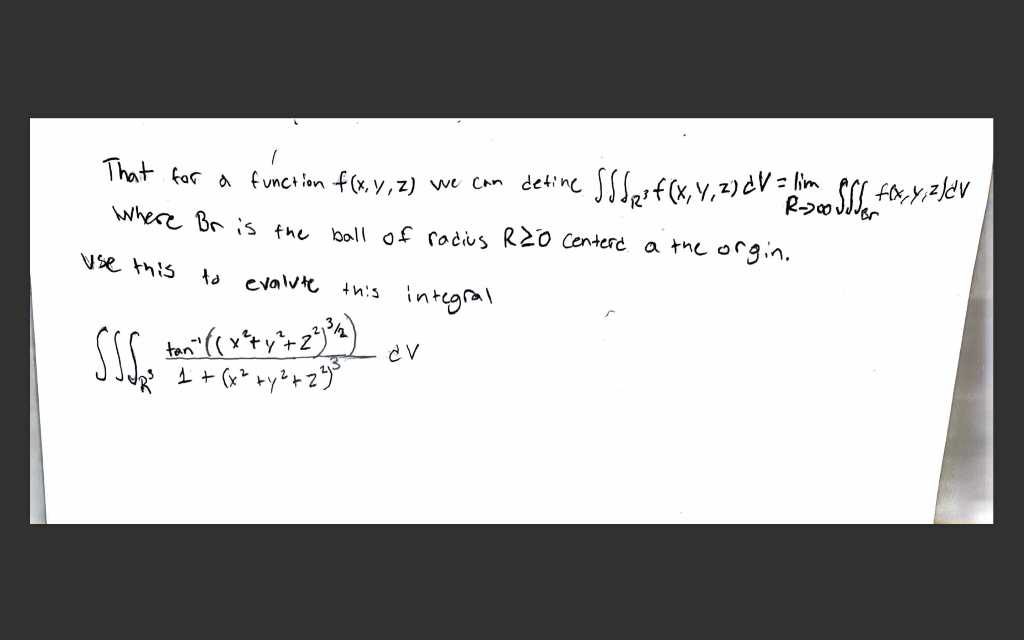 That for a function f(x,y,z) we can define ∭_R³ f(x,y,z) dV = lim R->∞ ∭_Br f(x,y,z)dV
where Br is the ball of radius R≥0 centerd a the orgin.
Use this to evalute this integral
∭_R³ tan⁻¹((x²+y²+z²)^3/2) / 1 + (x²+y²+z²)³ dV